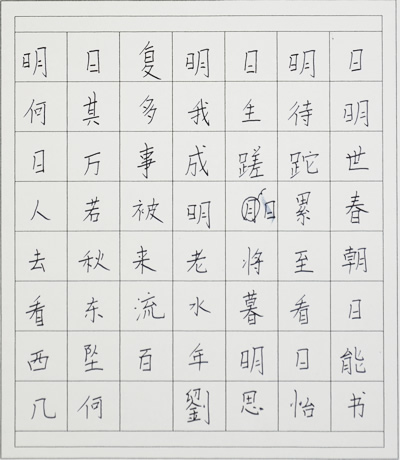 明日复明日明日
何其多我生待明
日万事成蹉跎世
人若被明日累春
去秋来老将至朝
看东流水暮看日
西坠百年明日能
几何 劉思怡书